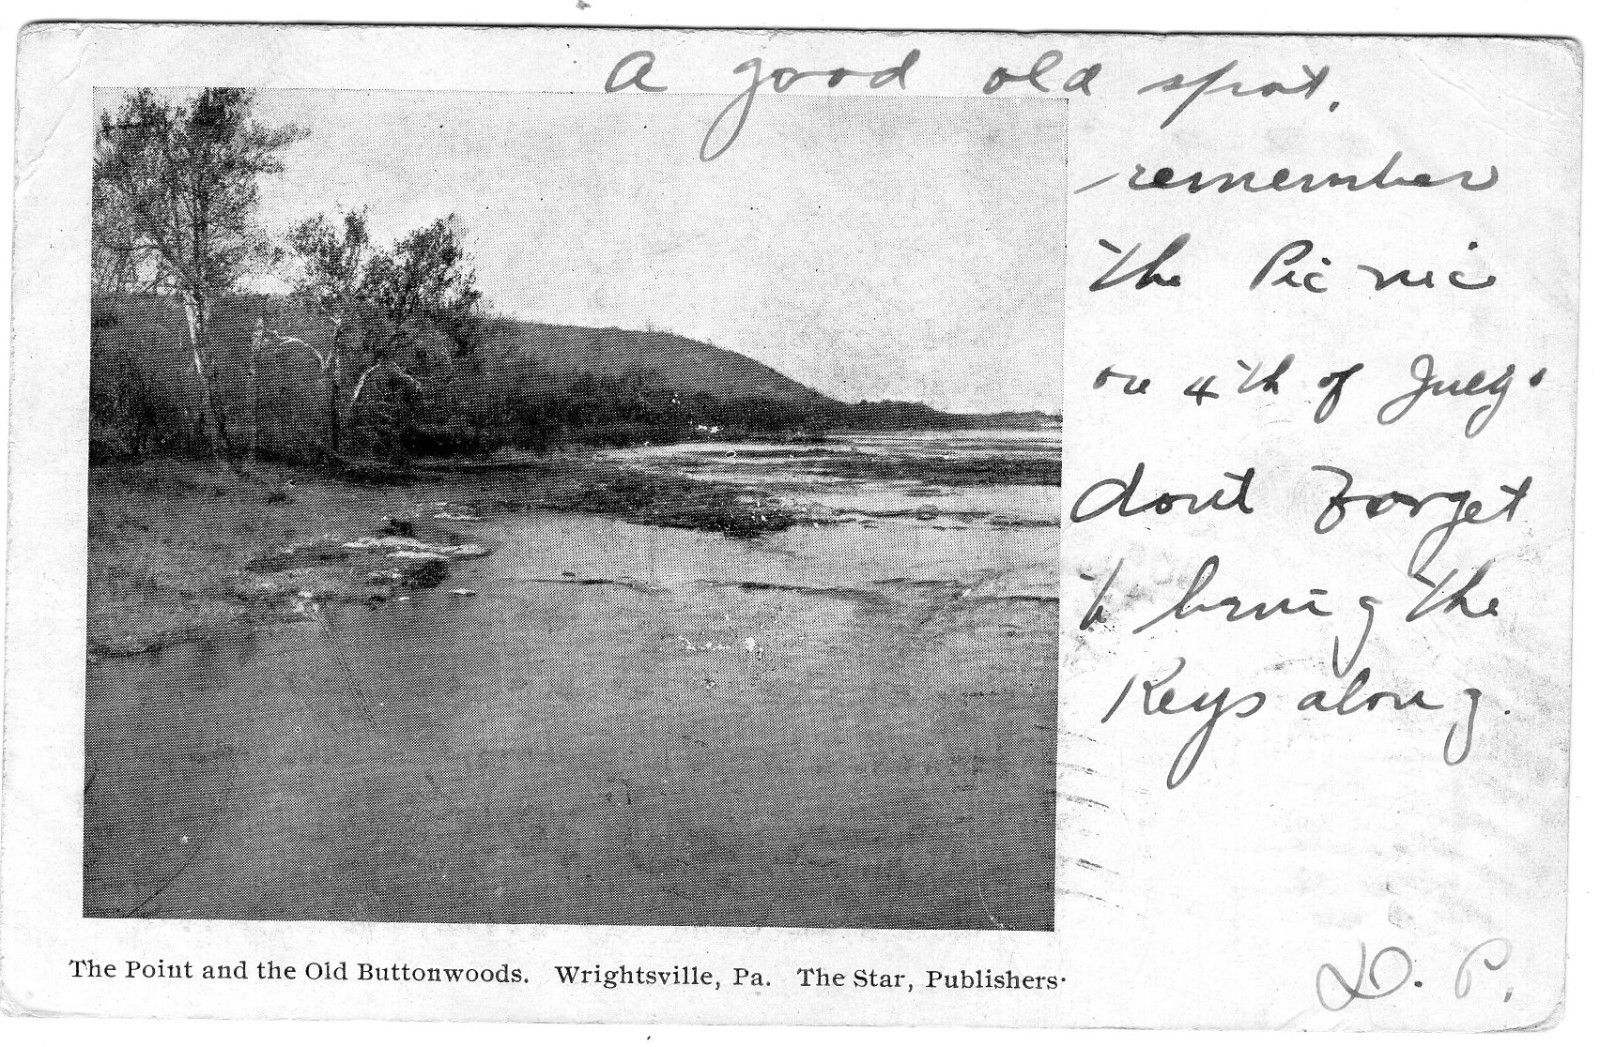 A good old spot.
remember
the Picnic
on 4th of July.
dont Forget
to bring the
Keys along.
D. P.
The Point and the Old Buttonwoods. Wrightsville, Pa. The Star, Publishers.